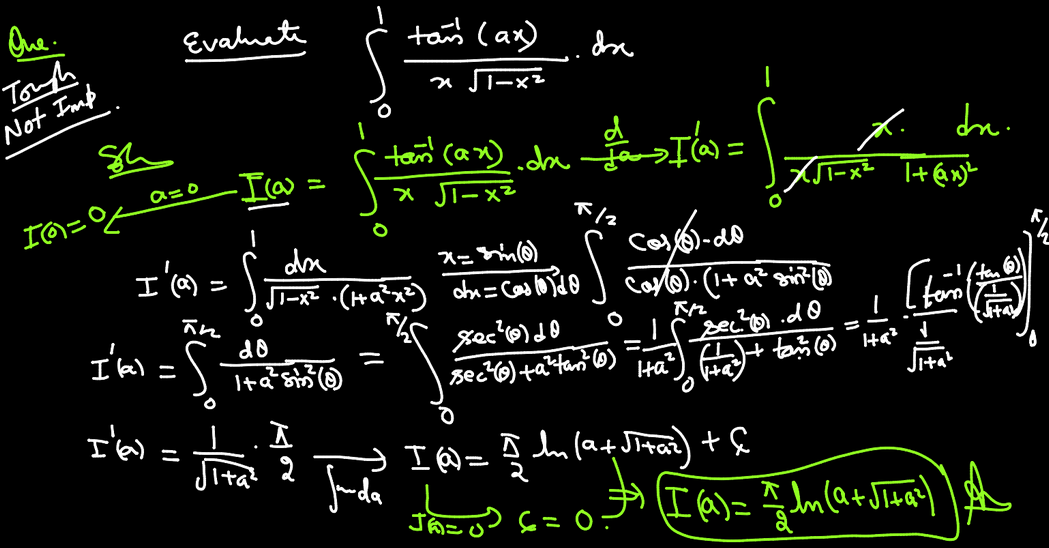 Que. Evaluate ∫₀¹ tan⁻¹(ax) / (x √(1-x²)) . dx
Tough
Not Imp.
Soln
I(0)=0 ← a=0 I(a) = ∫₀¹ tan⁻¹(ax) / (x √(1-x²)) . dx —d/da→ I'(a) = ∫₀¹ x. dx. / (x√(1-x²) 1+(ax)²)
I'(a) = ∫₀¹ dx / (√(1-x²) . (1+a²x²)) x = sin(θ) dx = cos(θ)dθ ∫₀^(π/2) cos(θ)-dθ / (cos(θ) . (1+a² sin²(θ)))
I'(a) = ∫₀^(π/2) dθ / (1+a² sin²(θ)) = ∫₀^(π/2) sec²(θ)dθ / (sec²(θ)+a²tan²(θ)) = 1/(1+a²) ∫₀^(π/2) sec²(θ) . dθ / ((1/(1+a²)) + tan²(θ)) = 1/(1+a²) . [tan⁻¹(tan(θ) / (1/√(1+a²))) / (1/√(1+a²))]₀^(π/2)
I'(a) = 1/√(1+a²) . π/2 —∫~da→ I(a) = π/2 ln(a+√(1+a²)) + C
I(0)=0 → C = 0. ⇒ I(a) = π/2 ln(a+√(1+a²))